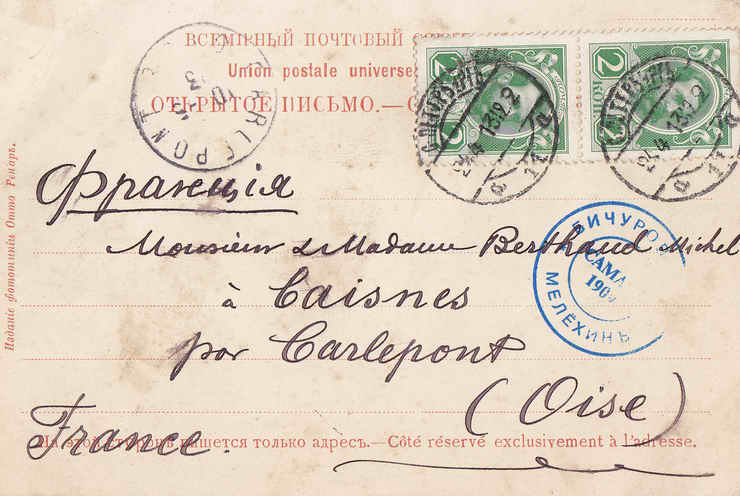 ВСЕМІРНЫЙ ПОЧТОВЫЙ
Union postale universe
ОТКРЫТОЕ ПИСЬМО.—
CARLEPONT
2
КОП
2
Франція
Monsieur & Madame Berthaud Michel
à Caisnes
par Carlepont
(Oise)
France.
БИЧУРО
САМА
190
МЕЛЁХИНЪ
На этой сторонѣ пишется только адресъ.—Côté réservé exclusivement à l'adresse.
Изданіе фототипіи Отто Ренаръ.